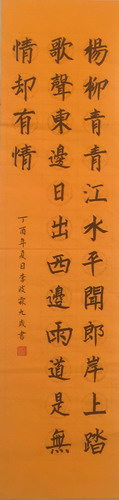 楊柳青青江水平聞郎岸上踏
歌聲東邊日出西邊雨道是無
情却有情
丁酉年夏日李波霖九歲書